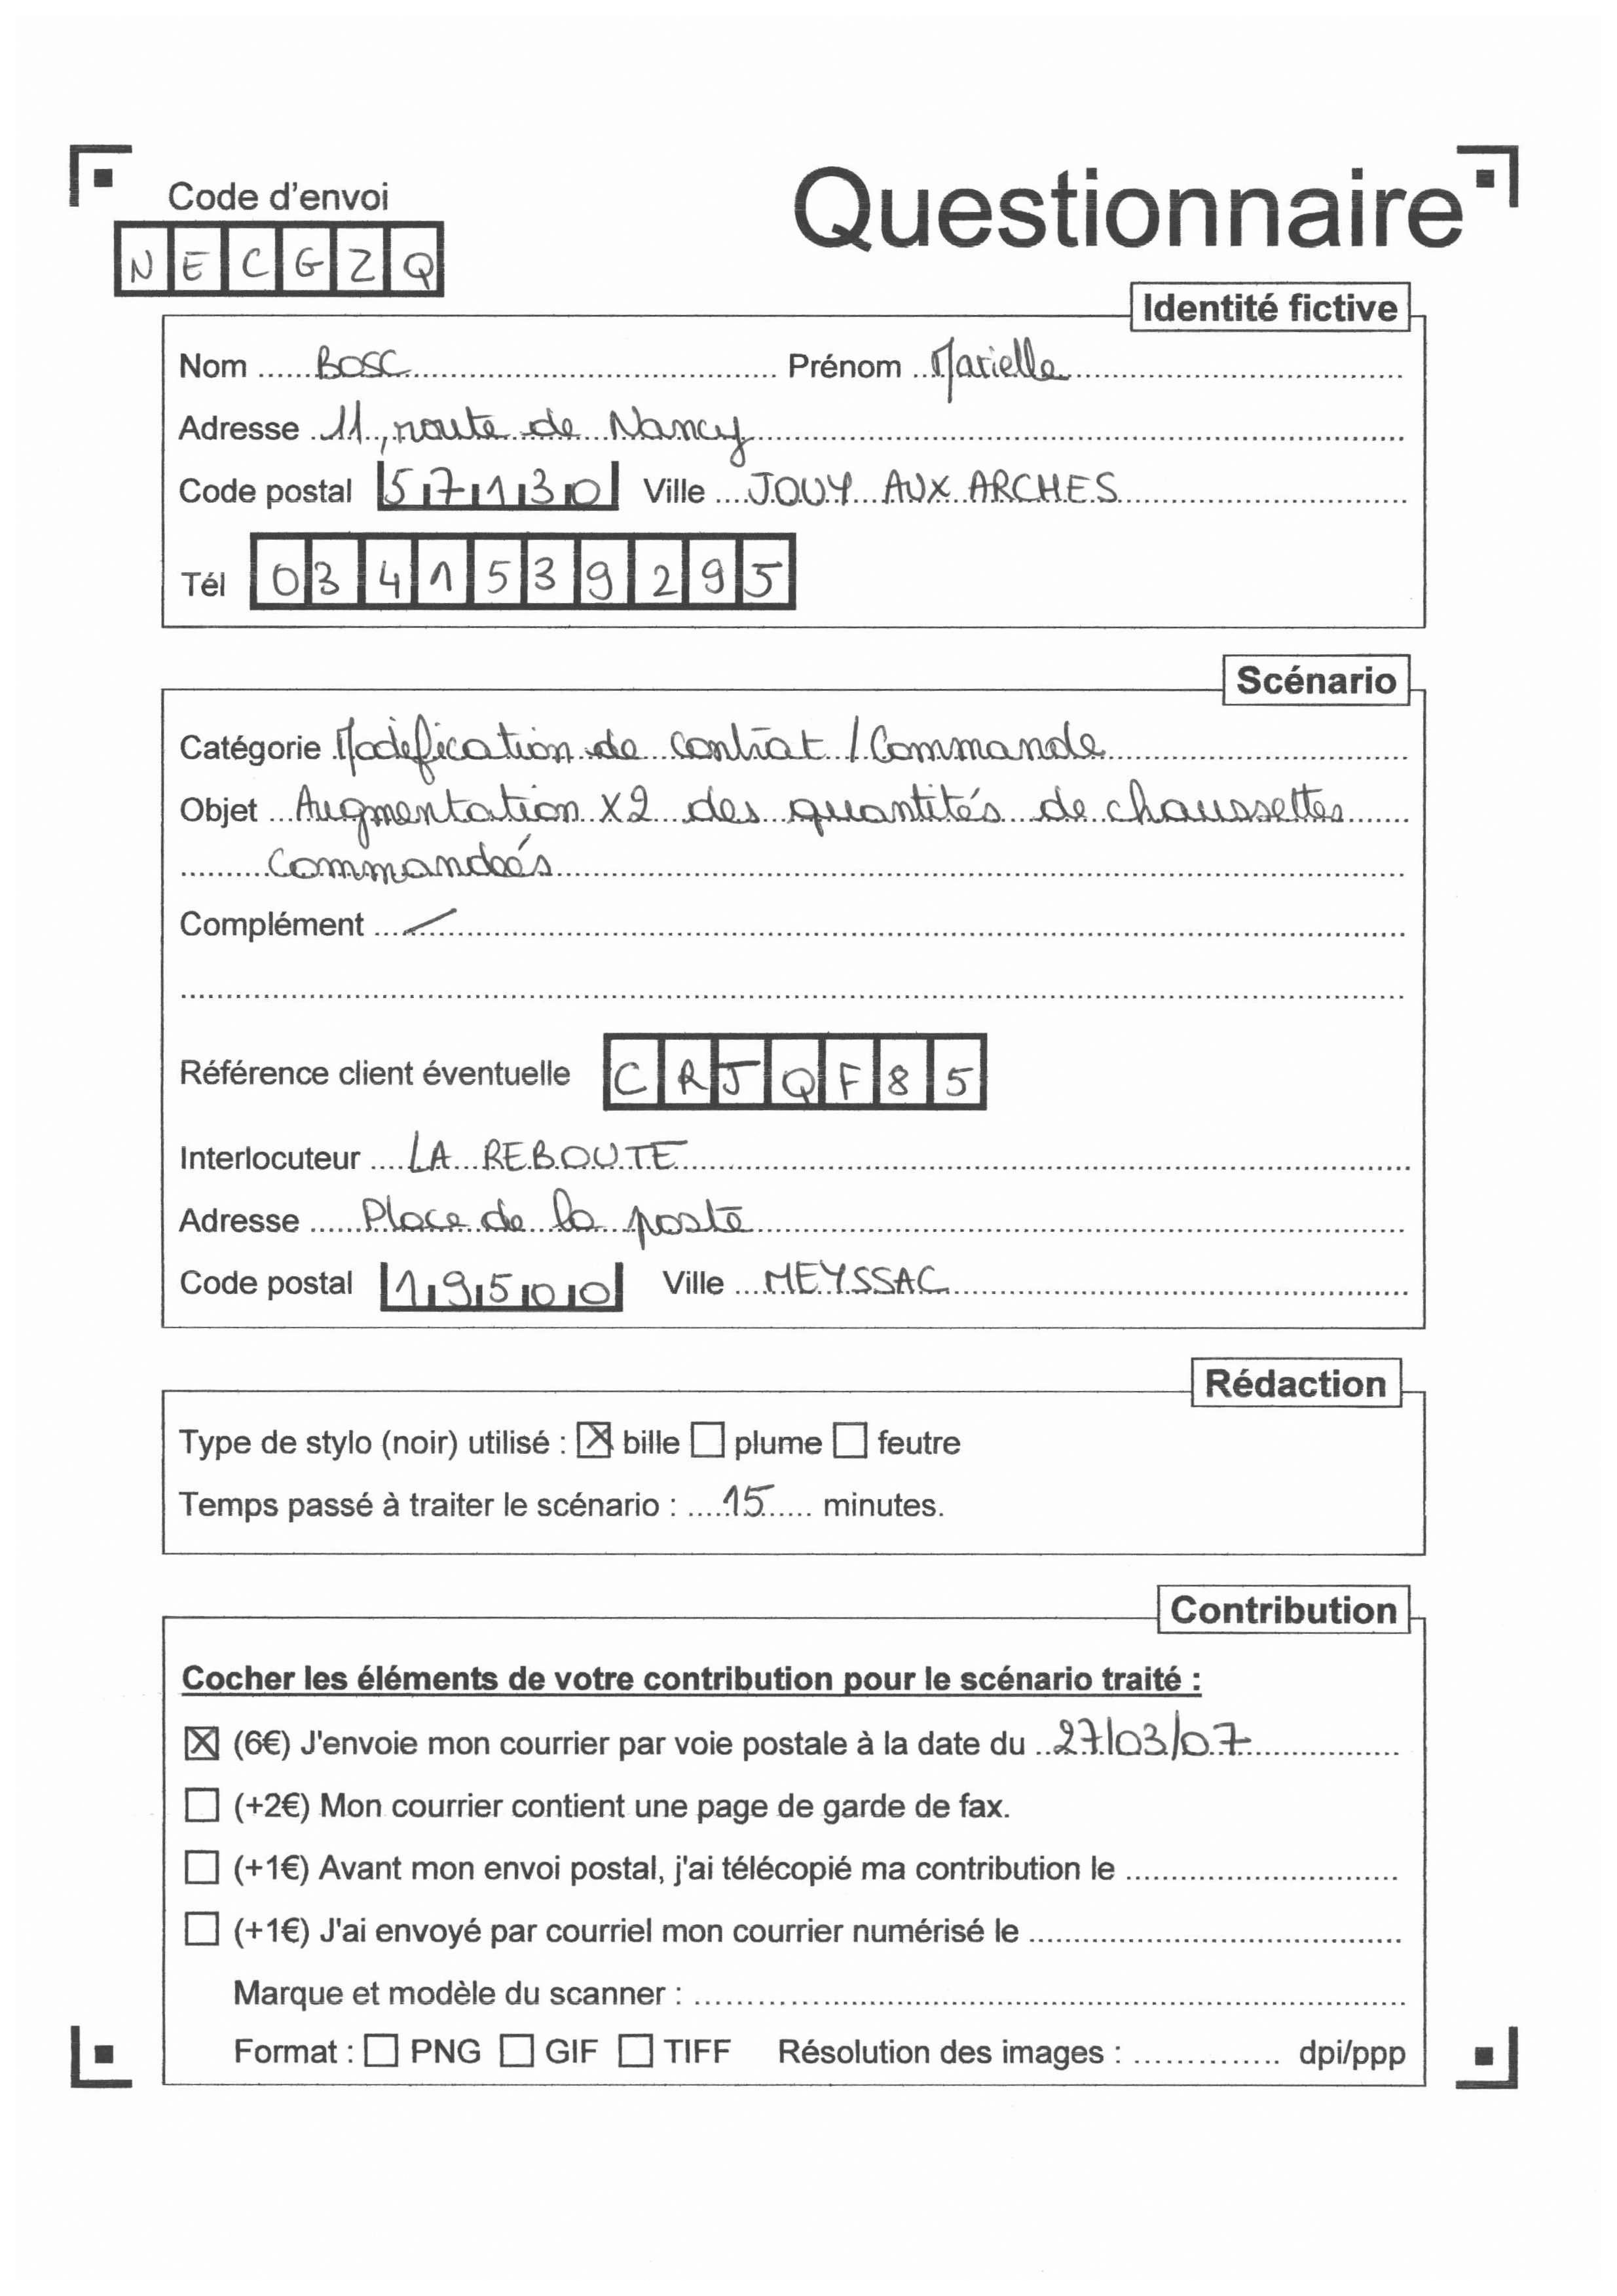 Code d'envoi
Questionnaire
N E C G Z Q
Identité fictive
Nom ...... BOSC ...... Prénom .. Marielle ......
Adresse . 11, route de Nancy ......
Code postal 57130 Ville .... JOUY AUX ARCHES ......
Tél 03 41 53 92 95
Scénario
Catégorie . Modification de contrat / Commande ......
Objet ... Augmentation x2 des quantités de chaussettes ......
......... Commandées ......
Complément ... / ......
Référence client éventuelle C R J Q F 8 5
Interlocuteur .... LA REBOUTE ......
Adresse ...... Place de la poste ......
Code postal 19500 Ville ... MEYSSAC ......
Rédaction
Type de stylo (noir) utilisé : ☒ bille ☐ plume ☐ feutre
Temps passé à traiter le scénario : .... 15 ...... minutes.
Contribution
Cocher les éléments de votre contribution pour le scénario traité :
☒ (6€) J'envoie mon courrier par voie postale à la date du .. 27/03/07 ......
☐ (+2€) Mon courrier contient une page de garde de fax.
☐ (+1€) Avant mon envoi postal, j'ai télécopié ma contribution le ......
☐ (+1€) J'ai envoyé par courriel mon courrier numérisé le ......
Marque et modèle du scanner : ......
Format : ☐ PNG ☐ GIF ☐ TIFF Résolution des images : .............. dpi/ppp